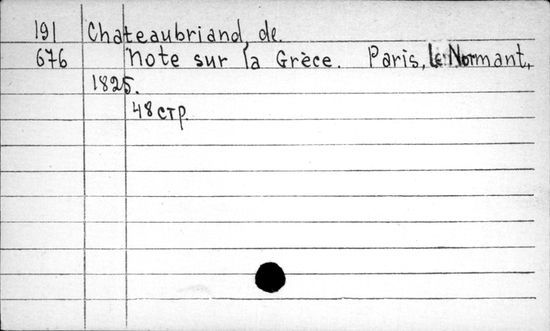 191 Chateaubriand, de.
676 Note sur la Grèce. Paris, le Normant,
1825.
48 стр.